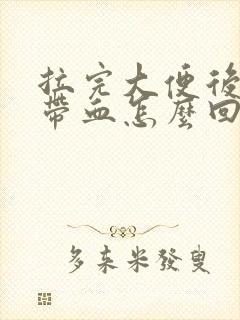 拉完大便後
帶血怎麼回
多來米發叟